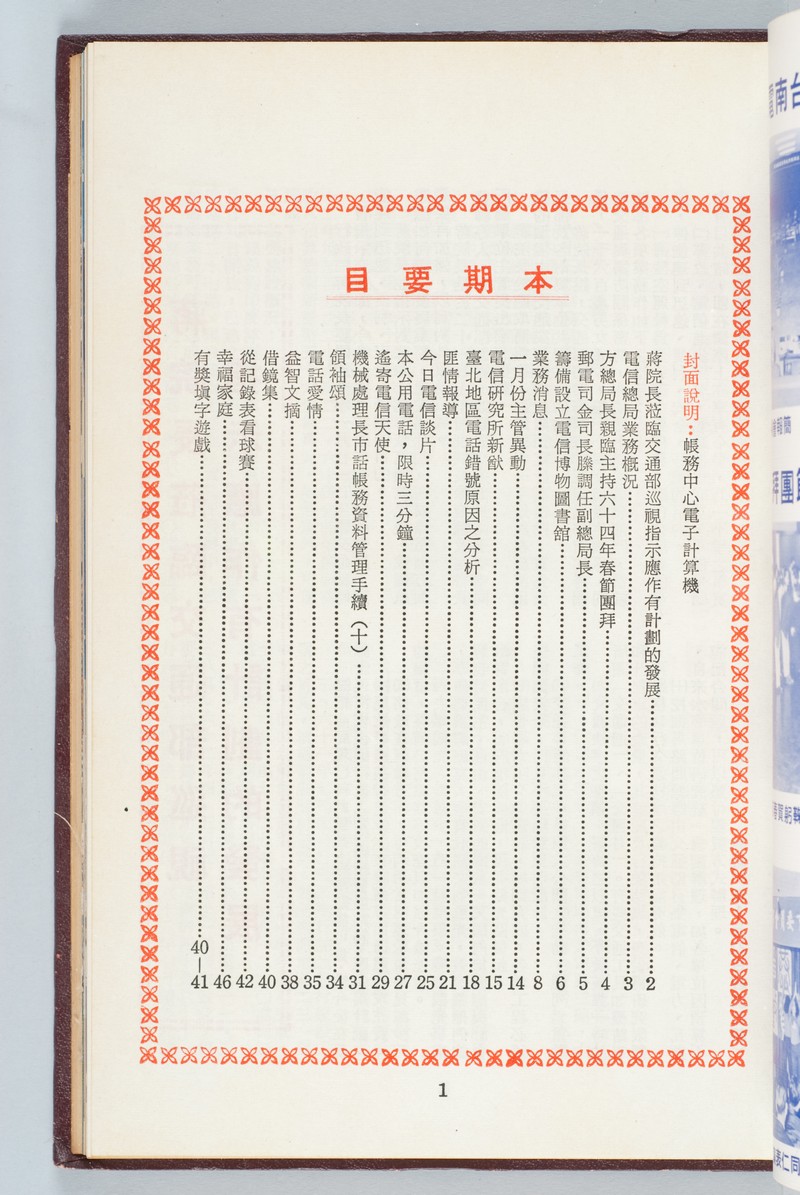 本期要目
封面說明：帳務中心電子計算機
蔣院長蒞臨交通部巡視指示應作有計劃的發展 2
電信總局業務概況 3
方總局長親臨主持六十四年春節團拜 4
郵電司金司長滕調任副總局長 5
籌備設立電信博物圖書舘 6
業務消息 8
一月份主管異動 14
電信研究所新猷 15
臺北地區電話錯號原因之分析 18
匪情報導 21
今日電信談片 25
本公用電話，限時三分鐘 27
遙寄電信天使 29
機械處理長市話帳務資料管理手續（十） 31
領袖頌 34
電話愛情 35
益智文摘 38
借鏡集 40
從記錄表看球賽 42
幸福家庭 46
有獎塡字遊戲 40—41
1
南台
團